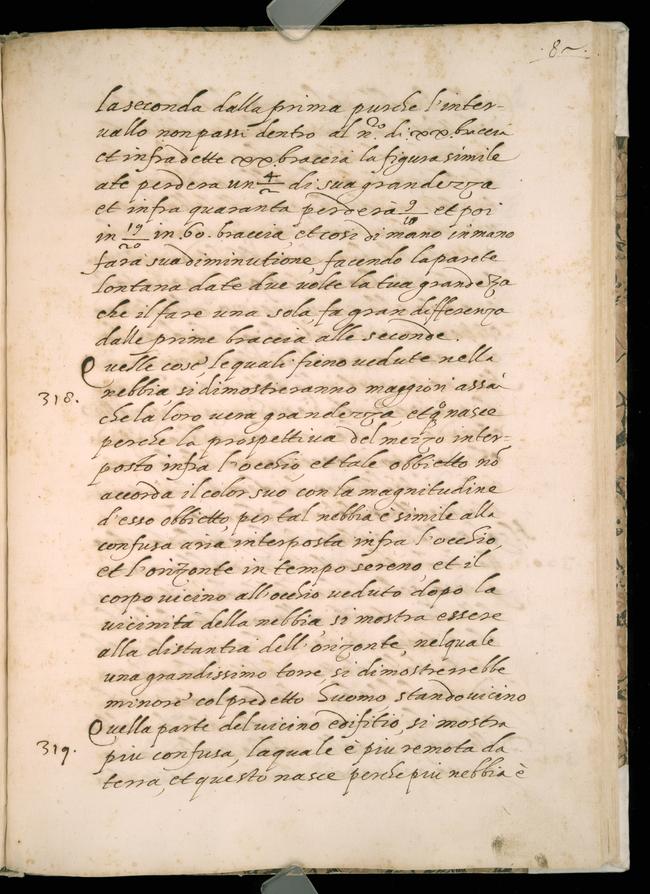 .82.
la seconda dalla prima purche l'inter-
uallo non passi dentro al n.º di xx. braccia
et infra dette xx. braccia la figura simile
a te perdera un 4/2 di sua grandezza
et infra quaranta perderà 9/10 et poi
in 19/20 in 60. braccia, et cosi di mano in mano
farà sua diminutione, facendo la parete
lontana da te due uolte la tua grandezza
che il fare una sola, fa gran differenza
dalle prime braccia alle seconde.
Quelle cose, le quali fieno uedute nella
318. nebbia si dimostreranno maggiori assai
che la loro uera grandezza, et qº nasce
perche la prospettiua del mezzo inter-
posto infra l'occhio et tale obbietto nō
accorda il color suo con la magnitudine
d'esso obbietto, per tal nebbia è simile alla
confusa aria interposta infra l'occhio,
et l'orizonte in tempo sereno, et il
corpo uicino all'occhio ueduto dopo la
uicinità della nebbia, si mostra essere
alla distantia dell'orizonte, nel quale
una grandissimo torre, si dimostrerrebbe
minore col predetto huomo, stando uicino
Quella parte del uicino edifitio, si mostra
319. piu confusa, la quale è piu remota da
terra, et questo nasce perche piu nebbia è